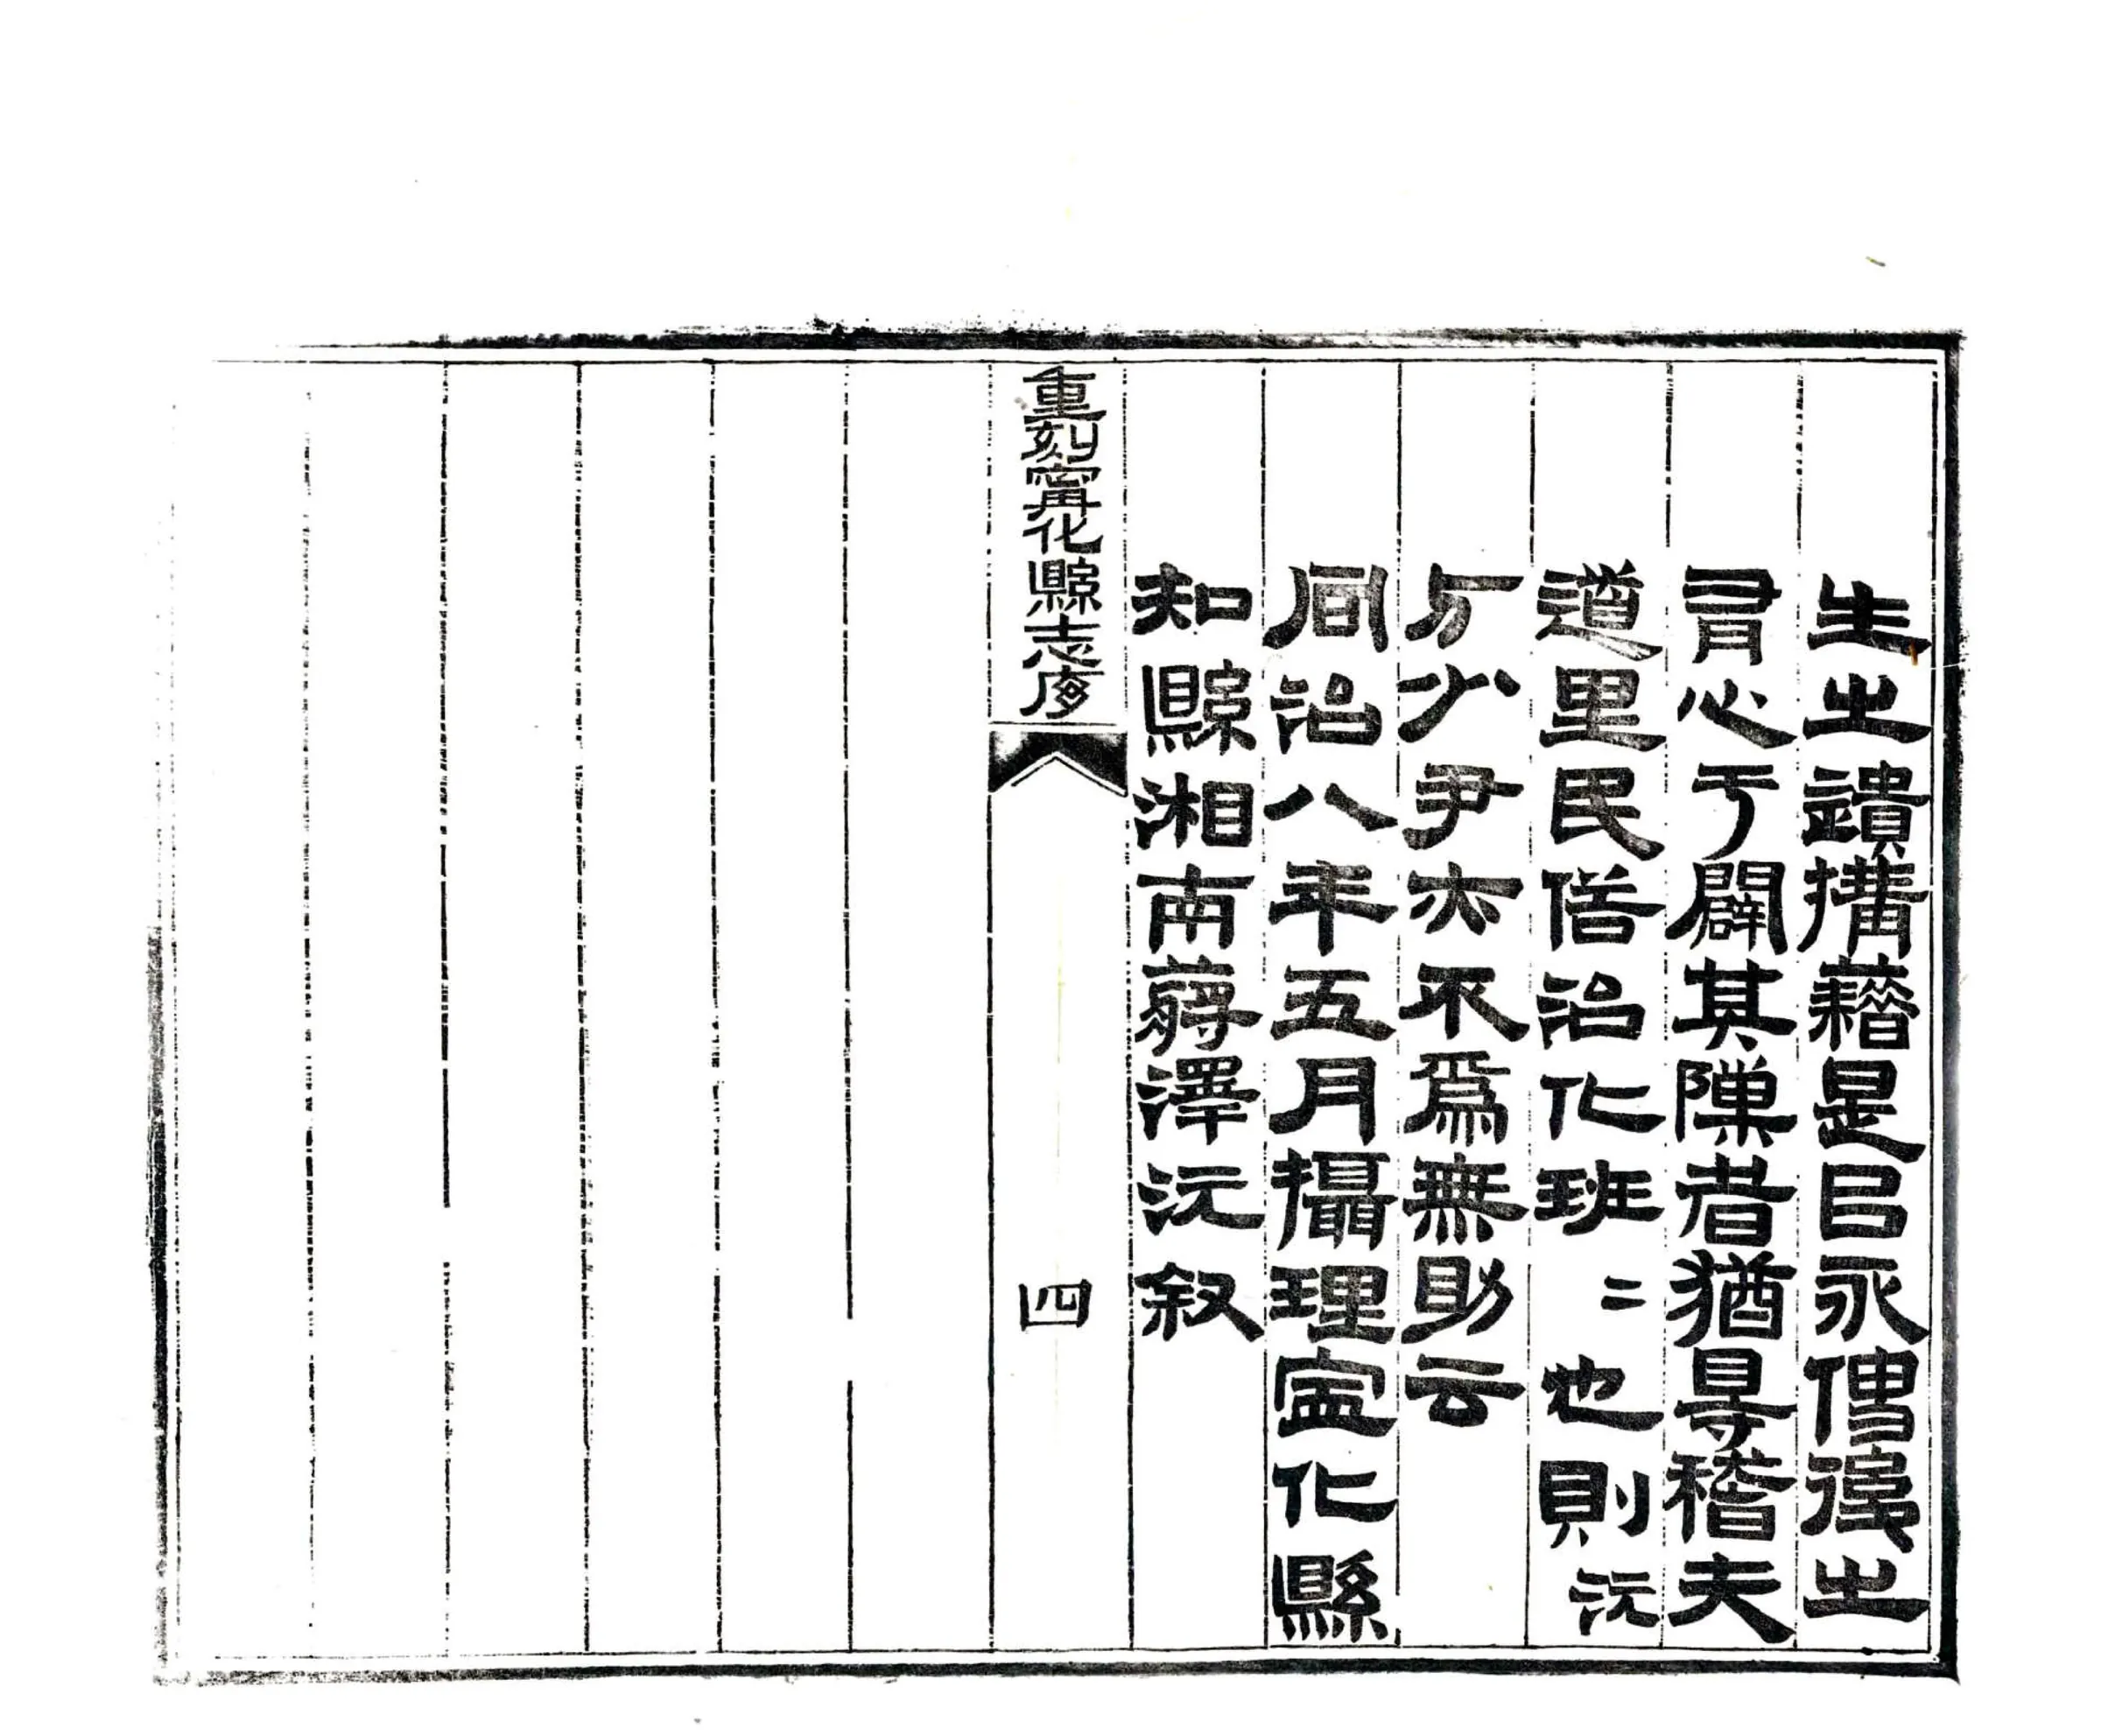 生之遺搆藉是㠯永傳後之
有心于闢其隟者猶㝵稽夫
道里民俗治化班〻也則沅
与少尹亦不爲無助云
同治八年五月攝理寍化縣
知縣湘南蔣澤沅叙
重刻寗化縣志序
四